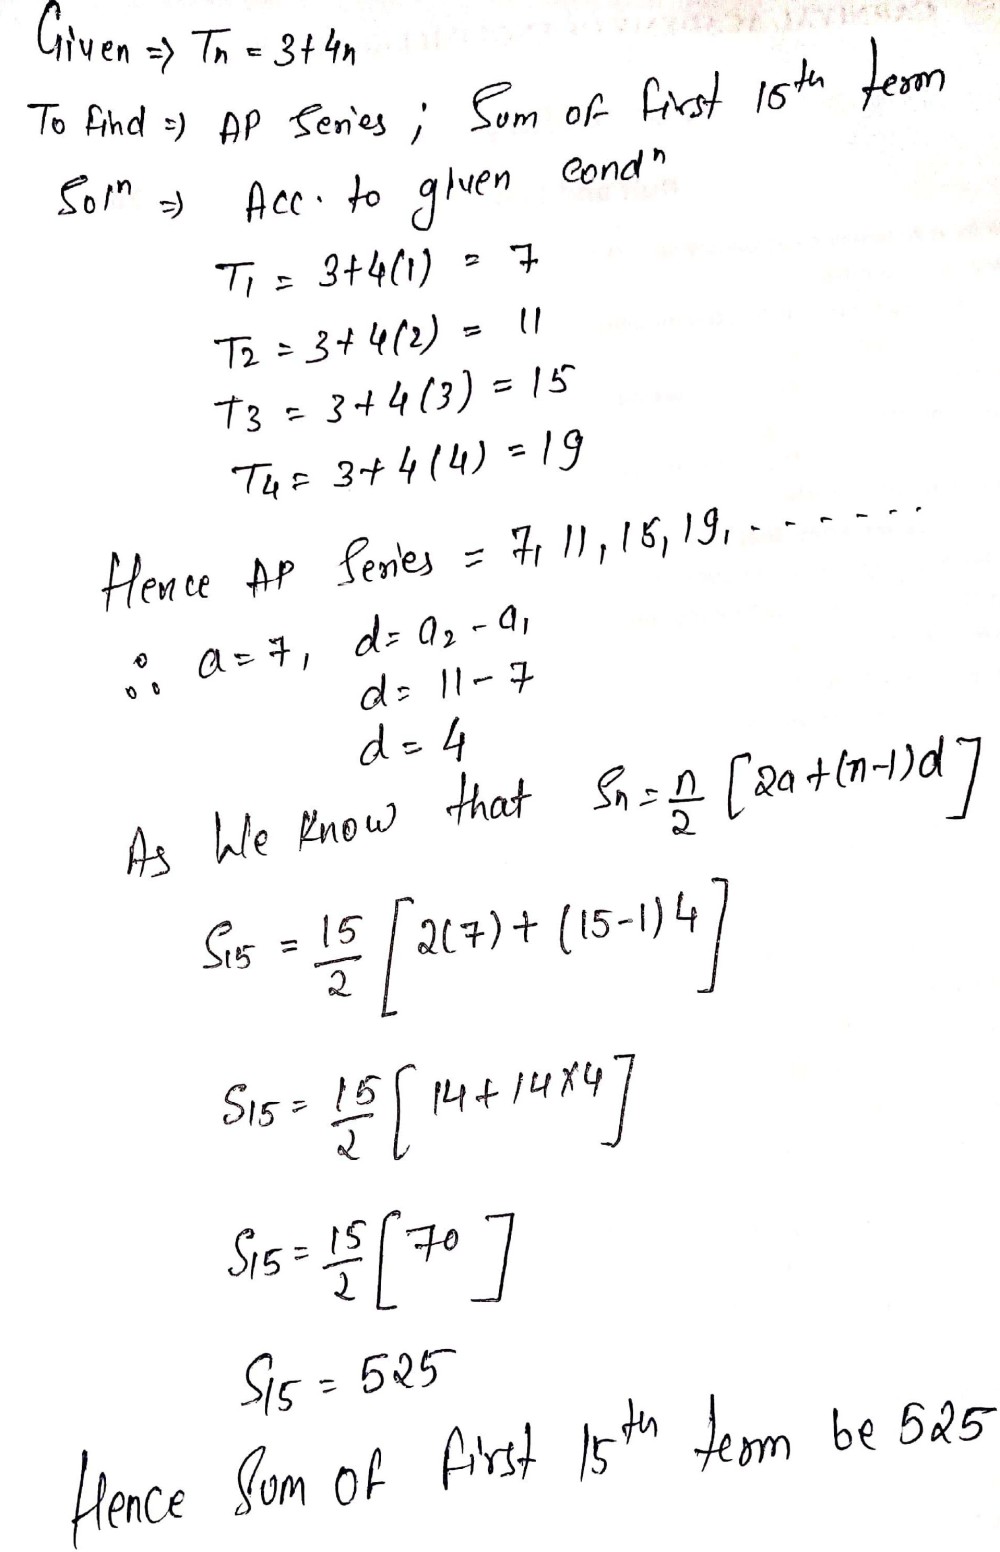 Given => Tn = 3+4n
To find => AP Series ; Sum of first 15th term
Solⁿ => Acc. to given condⁿ
T1 = 3+4(1) = 7
T2 = 3+4(2) = 11
T3 = 3+4(3) = 15
T4 = 3+4(4) = 19
Hence AP Series = 7, 11, 15, 19, - - - - - - -
∴ a=7, d= a2 - a1
d= 11-7
d= 4
As We Know that Sn = n/2 [2a+(n-1)d]
S15 = 15/2 [2(7)+(15-1)4]
S15 = 15/2 [14+14×4]
S15 = 15/2 [70]
S15 = 525
Hence Sum of first 15th term be 525